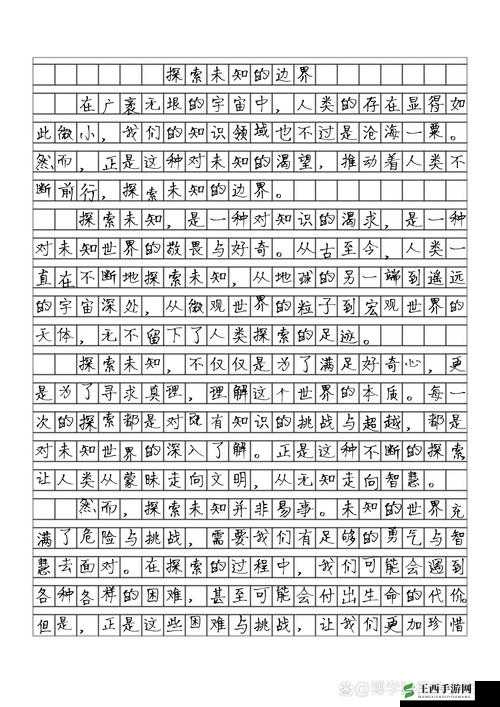 探索未知的边界
在广袤无垠的宇宙中，人类的存在显得如
此微小，我们的知识领域也不过是沧海一粟。
然而，正是这种对未知的渴望，推动着人类不
断前行，探索未知的边界。
探索未知，是一种对知识的渴求，是一种
对未知世界的敬畏与好奇。从古至今，人类一
直在不断地探索未知，从地球的另一端到遥远
的宇宙深处，从微观世界的粒子到宏观世界的
天体，无不留下了人类探索的足迹。
探索未知，不仅仅是为了满足好奇心，更
是为了寻求真理，理解这个世界的本质。每一
次的探索都是对既有知识的挑战与超越，都是
对未知世界的深入了解。正是这种不断的探索
让人类从蒙昧走向文明，从无知走向智慧。
然而，探索未知并非易事。未知的世界充
满了危险与挑战，需要我们有足够的勇气与智
慧去面对。在探索的过程中，我们可能会遇到
各种各样的困难，甚至可能会付出生命的代价。
但是，正是这些困难与挑战，让我们更加珍惜
王西手游网